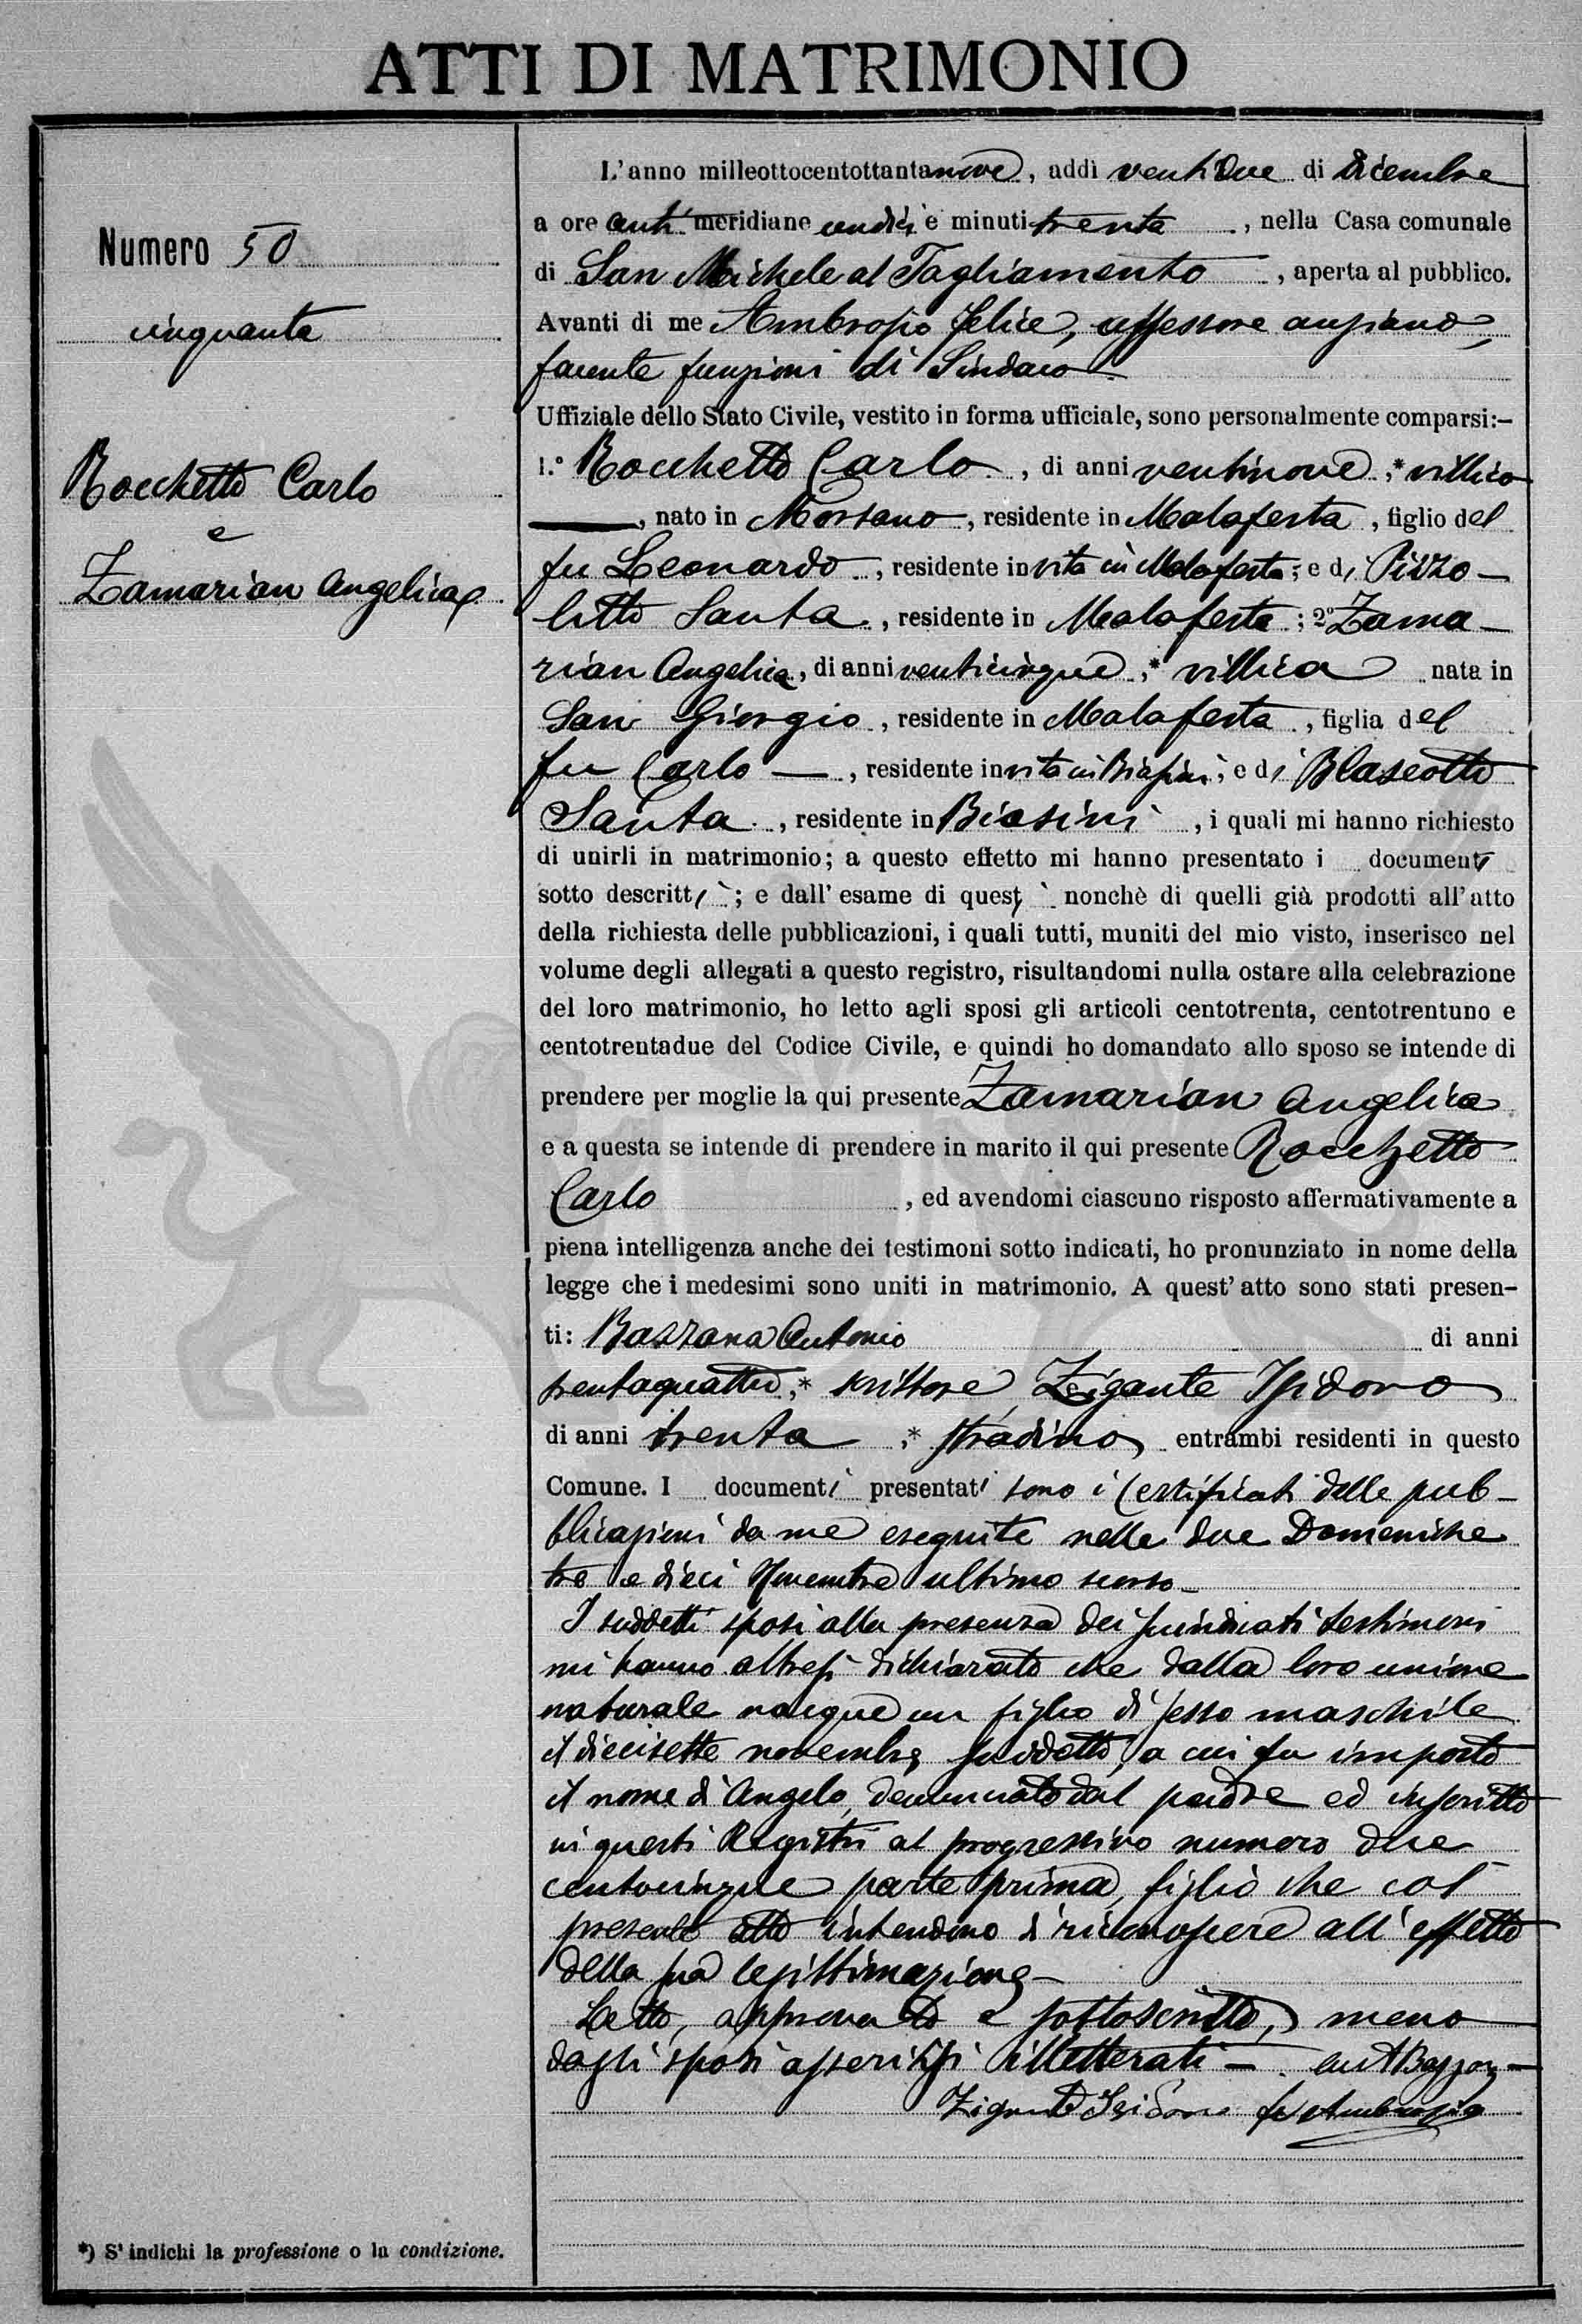 ATTI DI MATRIMONIO
Numero 50
cinquanta
Rocchetto Carlo
e
Zamarian Angelica
*) S' indichi la professione o la condizione.
L'anno milleottocentottantanove, addì ventidue di Dicembre
a ore anti meridiane undici e minuti trenta, nella Casa comunale
di San Michele al Tagliamento, aperta al pubblico.
Avanti di me Ambrosio Felice, assessore anziano,
facente funzioni di Sindaco
Uffiziale dello Stato Civile, vestito in forma ufficiale, sono personalmente comparsi:-
1.° Rocchetto Carlo, di anni ventinove,* villico
, nato in Morsano, residente in Malafesta, figlio del
fu Leonardo, residente in vita in Malafesta; e di Pizzo-
litto Santa, residente in Malafesta; 2° Zama-
rian Angelica, di anni venticinque,* villica nata in
San Giorgio, residente in Malafesta, figlia del
fu Carlo —, residente in vita in Biasini; e di Blaseotto
Santa, residente in Biasini, i quali mi hanno richiesto
di unirli in matrimonio; a questo effetto mi hanno presentato i documenti
sotto descritti; e dall' esame di questi nonchè di quelli già prodotti all' atto
della richiesta delle pubblicazioni, i quali tutti, muniti del mio visto, inserisco nel
volume degli allegati a questo registro, risultandomi nulla ostare alla celebrazione
del loro matrimonio, ho letto agli sposi gli articoli centotrenta, centotrentuno e
centotrentadue del Codice Civile, e quindi ho domandato allo sposo se intende di
prendere per moglie la qui presente Zamarian Angelica
e a questa se intende di prendere in marito il qui presente Rocchetto
Carlo, ed avendomi ciascuno risposto affermativamente a
piena intelligenza anche dei testimoni sotto indicati, ho pronunziato in nome della
legge che i medesimi sono uniti in matrimonio. A quest' atto sono stati presen-
ti: Bazzana Antonio di anni
trentaquattro,* scrittore, Zigante Isidoro
di anni trenta,* stradino, entrambi residenti in questo
Comune. I documenti presentati sono i Certificati delle pub-
blicazioni da me eseguite nelle due Domeniche
tre e dieci Novembre ultimo scorso-
I suddetti sposi alla presenza dei suindicati testimoni
mi hanno altresì dichiarato che dalla loro unione
naturale nacque un figlio di sesso maschile
il diecisette novembre suddetto, a cui fu imposto
il nome di Angelo, denunciato dal padre ed inscritto
in questi Registri al progressivo numero due
centocinque parte prima, figlio che col
presente atto intendono di riconoscere all'effetto
della sua legittimazione-
Letto, approvato e sottoscritto, meno
dagli sposi assertisi illetterati -
Zigante Isidoro F. Ambrosio